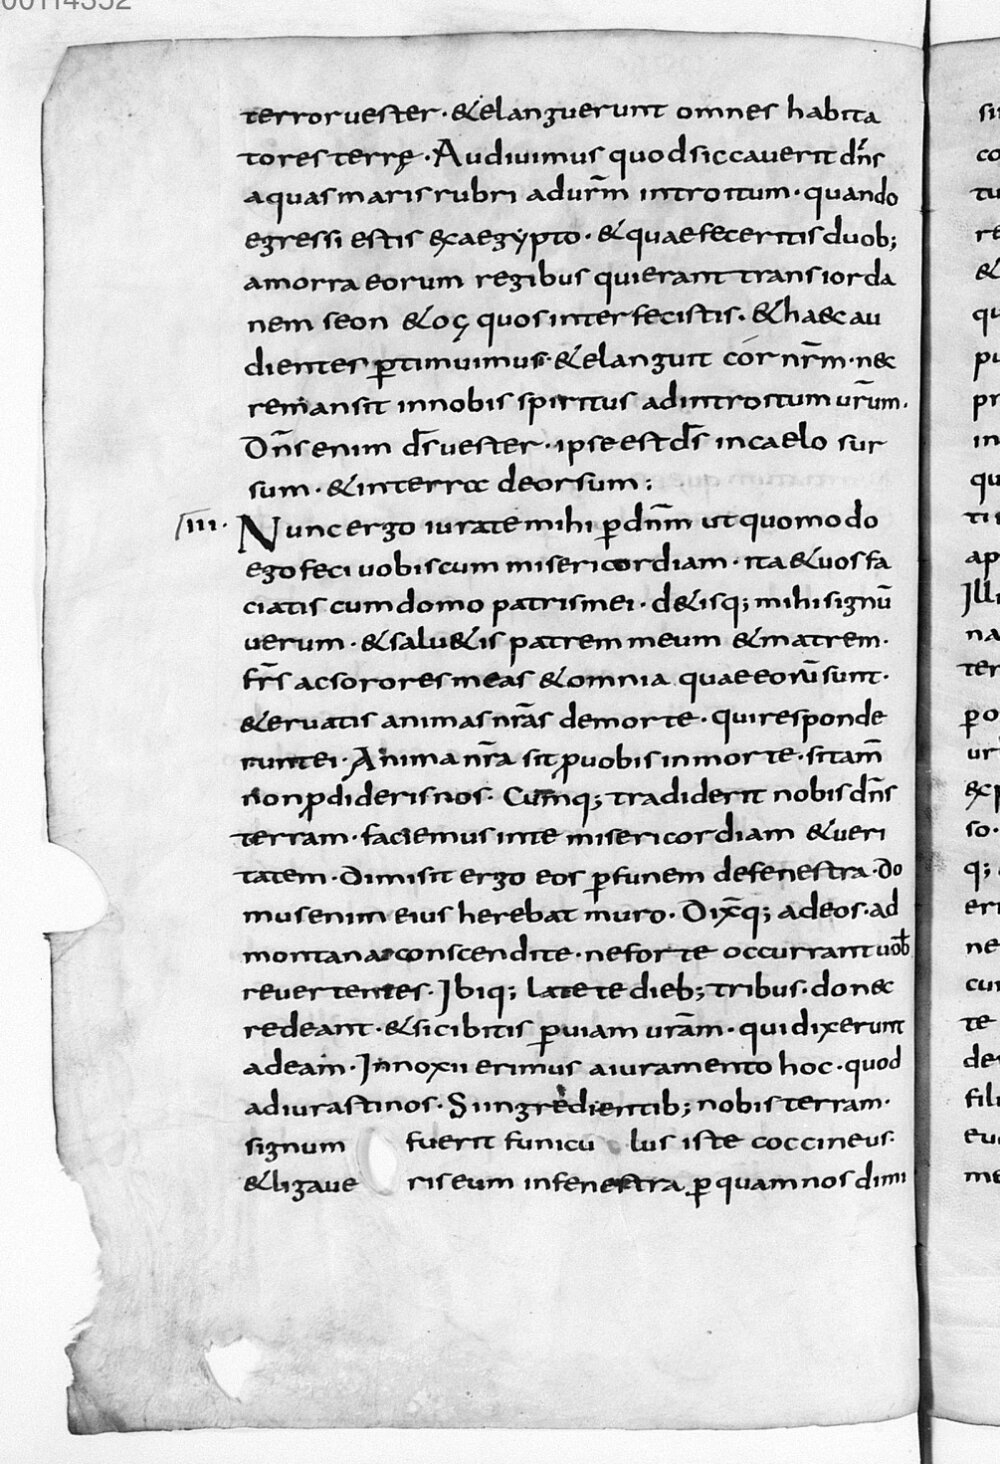 00114352
terror uester · & elanguerunt omnes habita
tores terrę · Audiuimus quod siccauerit dn̄s
aquas maris rubri ad ur̄m introitum · quando
egressi estis &caegypto · & quae feceritis duob;
amorraeorum regibus qui erant trans iorda
nem seon & og quos interfecistis · & haec au
dientes p̄timuimus · & elanguit cor nr̄m · nec
remansit in nobis spiritus ad introitum ur̄um.
Dn̄s enim d̄s uester · ipse est d̄s in caelo sur
sum · & in terra deorsum :
III · Nunc ergo iurate mihi p̄ dn̄m ut quomodo
ego feci uobiscum misericordiam · ita & uos fa
ciatis cum domo patris mei · d&isq; mihi signū
uerum · & salu&is patrem meum & matrem ·
fr̄s ac sorores meas & omnia quae eorū sunt ·
& eruatis animas nr̄as de morte · qui responde
runt ei · Anima nr̄a sit p̄ uobis in morte · si tam̄
non p̄dideris nos · Cumq; tradiderit nobis dn̄s
terram · faciemus in te misericordiam & ueri
tatem · Dimisit ergo eos p̄ funem de fenestra · Do
mus enim eius herebat muro · Dix̄q; ad eos · ad
montana conscendite · ne forte occurrant uob̄
reuertentes · Ibiq; latete dieb; tribus · donec
redeant · & sic ibitis p̄ uiam ur̄am · qui dixerunt
ad eam · Innoxii erimus a iuramento hoc · quod
adiurasti nos · Si ingredientib; nobis terram ·
signum fuerit funicu lus iste coccineus ·
& ligaue ris eum in fenestra p̄ quam nos dimi